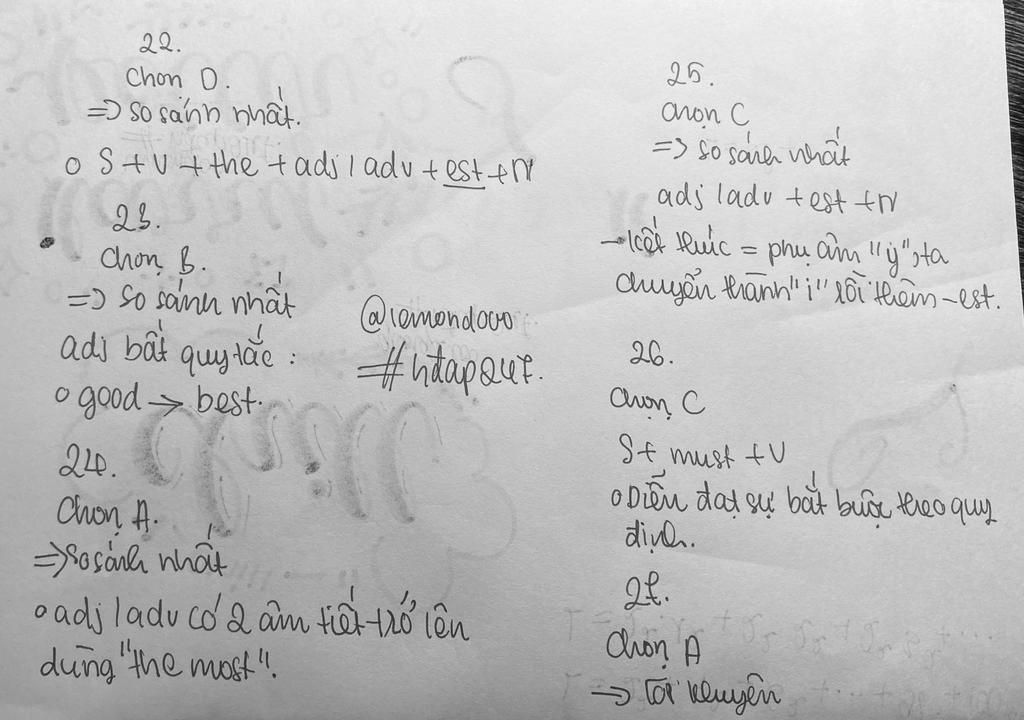 22.
Chọn D.
=> So sánh nhất.
o S + V + the + adj / adv + est + N
23.
Chọn B.
=> So sánh nhất
adj bất quy tắc :
o good → best.
24.
Chọn A.
=> So sánh nhất
o adj / adv có 2 âm tiết trở lên
dùng "the most".
@lemond000
#hđap247.
25.
Chọn C
=> So sánh nhất
adj / adv + est + N
→ Kết thúc = phụ âm "y", ta
chuyển thành "i" rồi thêm -est.
26.
Chọn C
S + must + V
o Diễn đạt sự bắt buộc theo quy
định.
27.
Chọn A
→ Lời khuyên